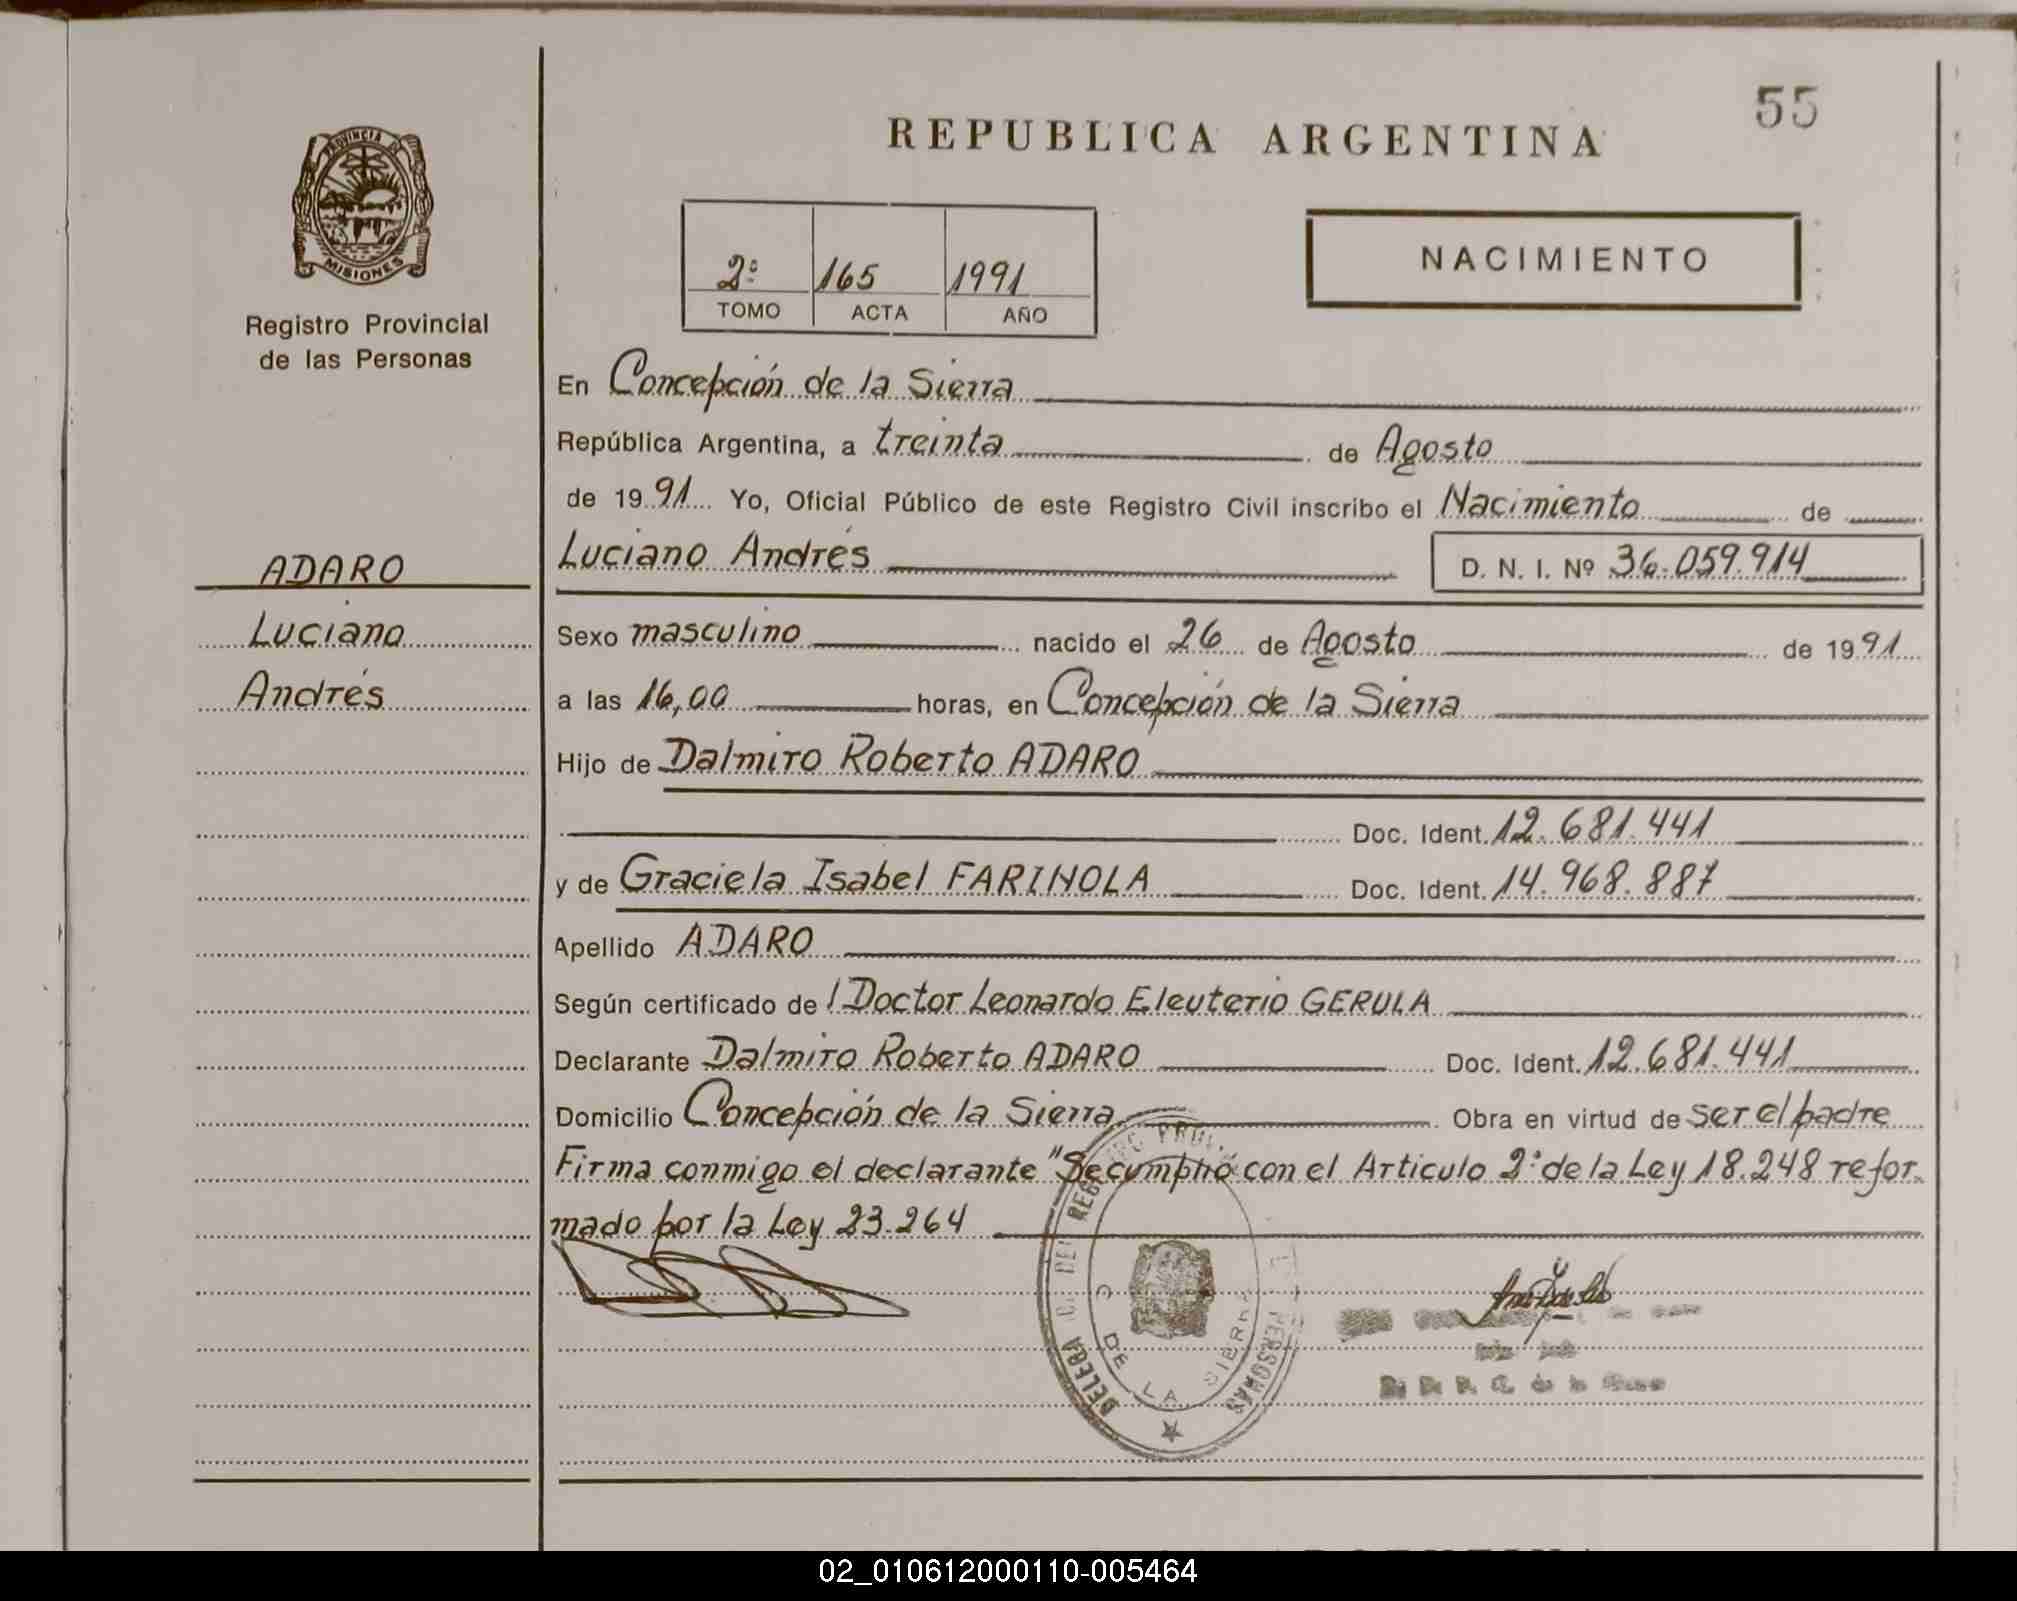 55
REPUBLICA ARGENTINA
PROVINCIA DE
MISIONES
Registro Provincial
de las Personas
2º 165 1991
TOMO ACTA AÑO
NACIMIENTO
En Concepción de la Sierra
República Argentina, a treinta de Agosto
de 1991 Yo, Oficial Público de este Registro Civil inscribo el Nacimiento de
ADARO
Luciano
Andrés
Luciano Andrés D. N. I. Nº 36.059.914
Sexo masculino nacido el 26 de Agosto de 1991
a las 16,00 horas, en Concepción de la Sierra
Hijo de Dalmiro Roberto ADARO
Doc. Ident. 12.681.441
y de Graciela Isabel FARINOLA Doc. Ident. 14.968.887
Apellido ADARO
Según certificado de / Doctor Leonardo Eleuterio GERULA
Declarante Dalmiro Roberto ADARO Doc. Ident. 12.681.441
Domicilio Concepción de la Sierra Obra en virtud de ser el padre
Firma conmigo el declarante "Se cumplió con el Articulo 2º de la Ley 18.248 refor-
mado por la Ley 23.264
DE LA SIERRA
PERSONAS
02_010612000110-005464